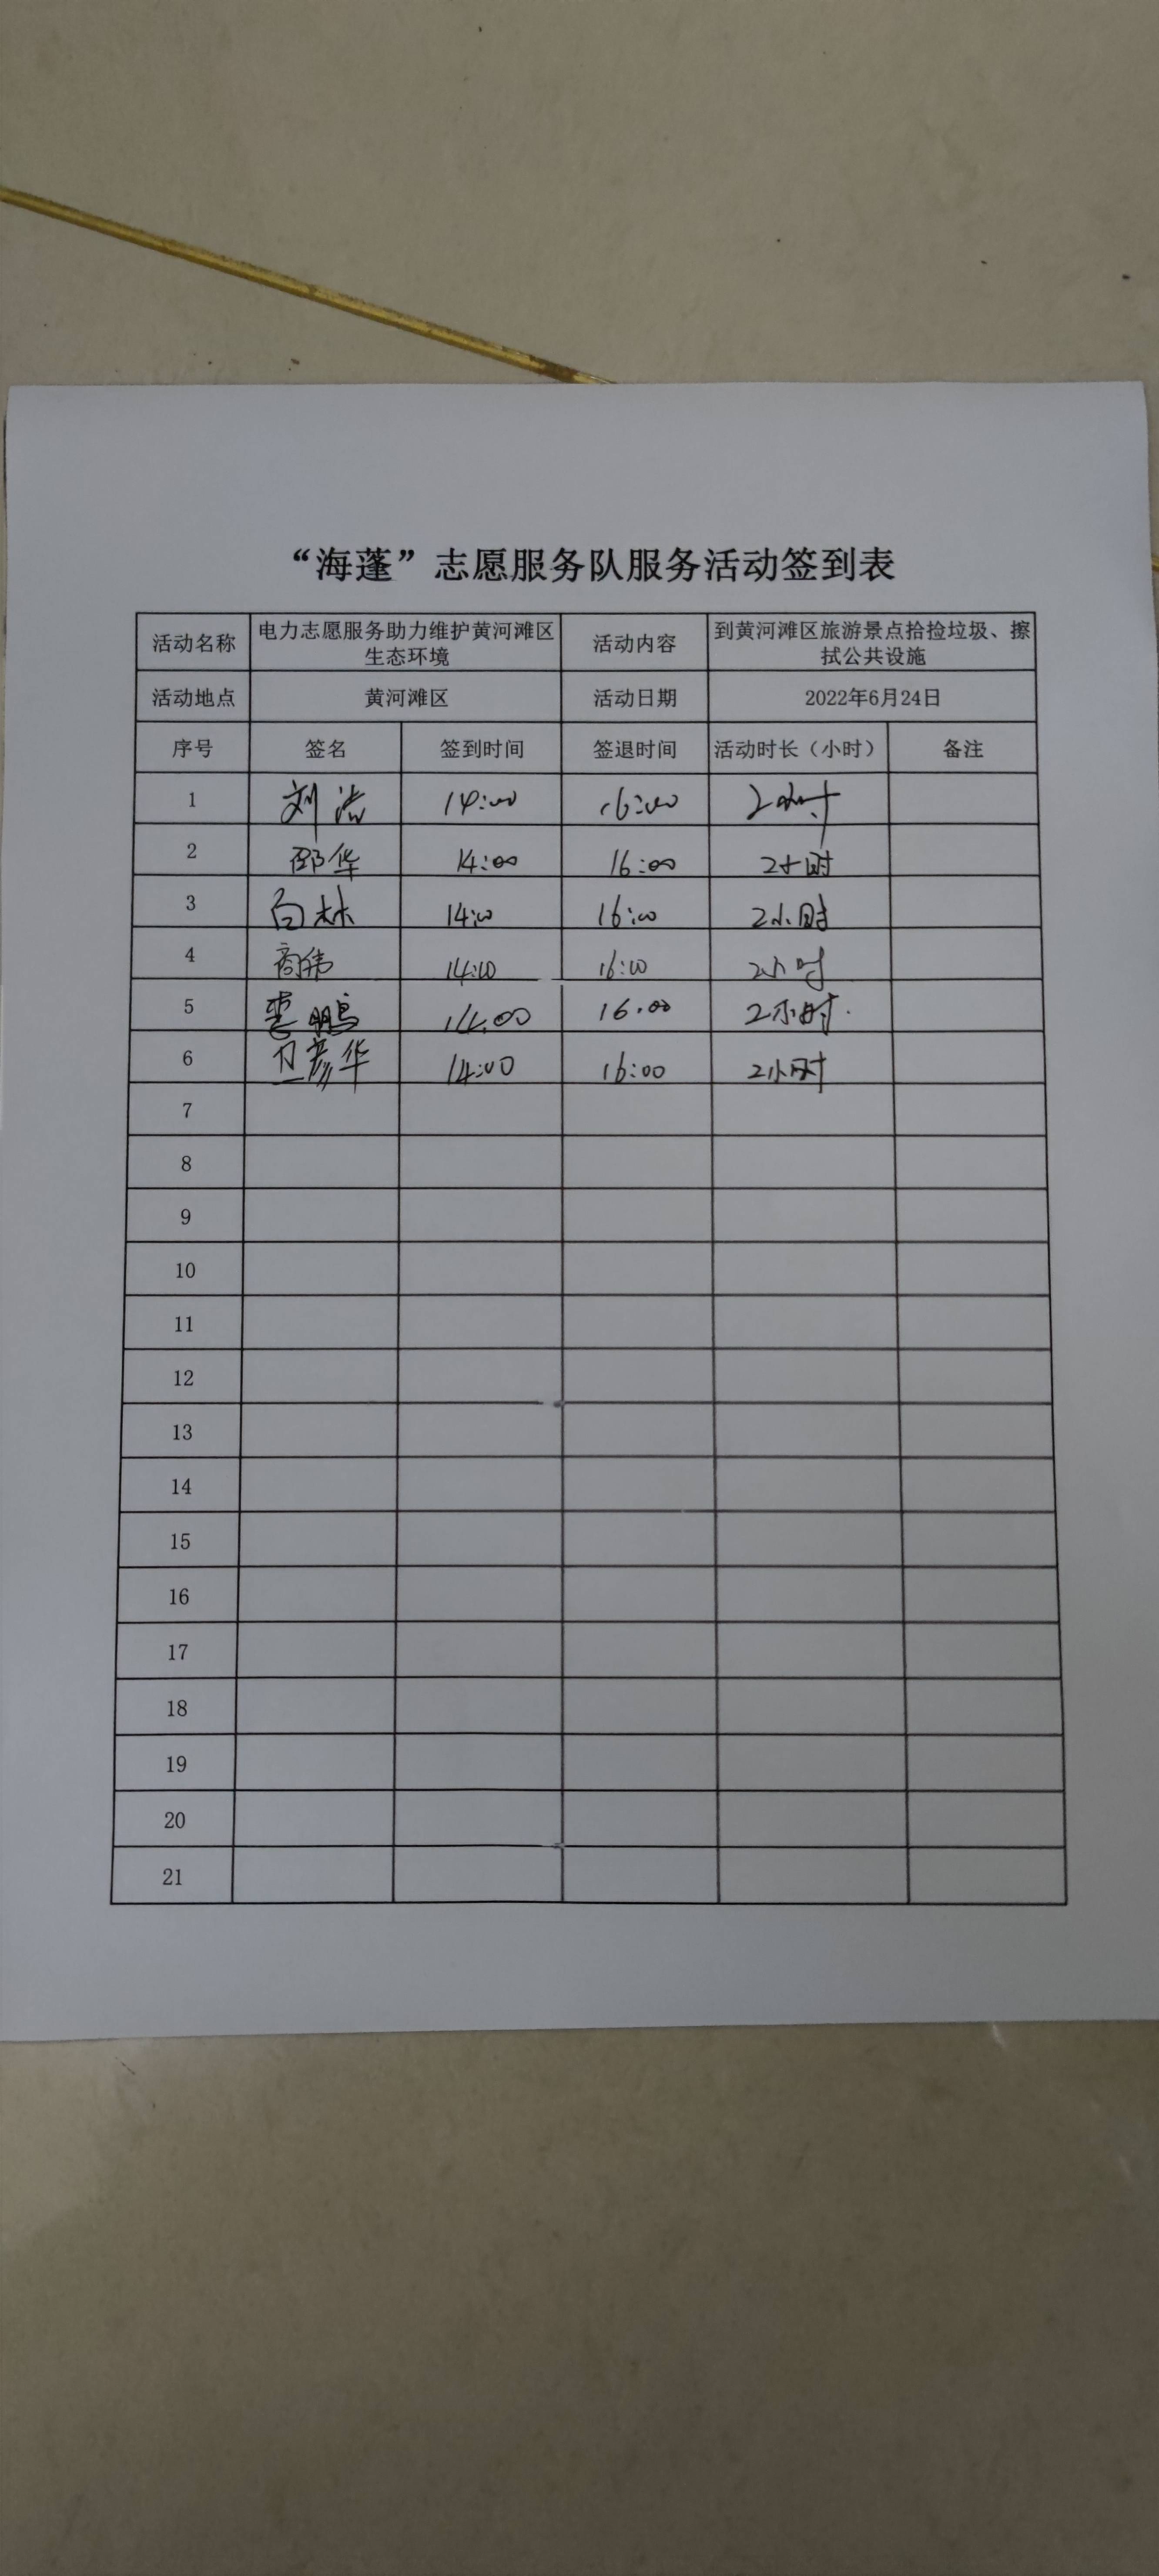 “海蓬”志愿服务队服务活动签到表
活动名称 电力志愿服务助力维护黄河滩区生态环境 活动内容 到黄河滩区旅游景点拾捡垃圾、擦拭公共设施
活动地点 黄河滩区 活动日期 2022年6月24日
序号 签名 签到时间 签退时间 活动时长（小时） 备注
1 刘浩 14:00 16:00 2小时
2 邵华 14:00 16:00 2小时
3 白林 14:00 16:00 2小时
4 商伟 14:00 16:00 2小时
5 李鹏 14:00 16:00 2小时
6 卫彦华 14:00 16:00 2小时
7
8
9
10
11
12
13
14
15
16
17
18
19
20
21